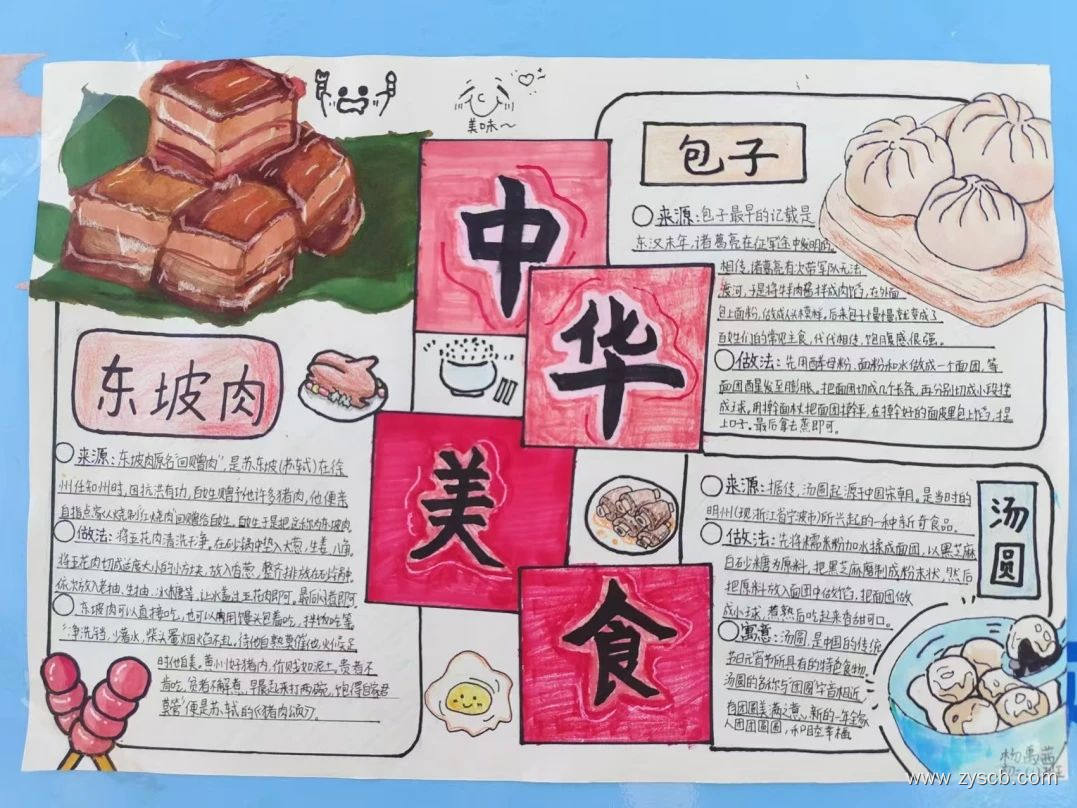 美味~
中
华
美
食
东坡肉
来源:东坡肉原名"回赠肉",是苏东坡(苏轼)在徐
州任知州时,因抗洪有功,百姓赠予他许多猪肉,他便亲
自指点家人烧制红烧肉"回赠给百姓,百姓于是把这称为东坡肉
做法:将五花肉清洗干净。在砂锅中垫入大葱,生姜,八角
将五花肉切成适度大小的小方块,放入香葱,整齐排放在砂锅
依次放入老抽,生抽,冰糖等,让水盖过五花肉即可,最后闷煮即可
东坡肉可以直接吃,也可以用馒头包着吃,拌饭吃等
"净洗铛,少着水,柴头罨烟焰不起,待他自熟莫催他,火候足
时他自美。黄州好猪肉,价贱如泥土,贵者不
肯吃,贫者不解煮,早晨起来打两碗,饱得自家君
莫管"便是苏轼的《猪肉颂》。
包子
来源:包子最早的记载是
东汉末年,诸葛亮在征军途中发明的
相传,诸葛亮有次带军队无法
渡河,于是将牛羊肉酱拌成肉馅,在外面
包上面粉,做成人头模样。后来包子慢慢就变成了
百姓们的常见主食,代代相传,饱腹感很强。
做法:先用酵母粉,面粉和水做成一个面团,等
面团醒发至膨胀,把面团切成几个长条,再分别切成小段揉
成球,用擀面杖把面团擀平,在擀好的面皮里包上馅,捏
上口子。最后拿去蒸即可。
汤圆
来源:据传,汤圆起源于中国宋朝。是当时的
明州(现浙江省宁波市)所兴起的一种新奇食品。
做法:先将糯米粉加水揉成面团,以黑芝麻
白砂糖为原料,把黑芝麻磨制成粉末状,然后
把原料放入面团中做馅,把面团做
成小球,煮熟后吃起来香甜可口。
寓意:汤圆是中国的传统
节日元宵节所具有的特色食物,
汤圆的名称与"团圆"字音相近
有团圆美满之意,新的一年全家
人团团圆圆,和睦幸福
www.zyscb.com